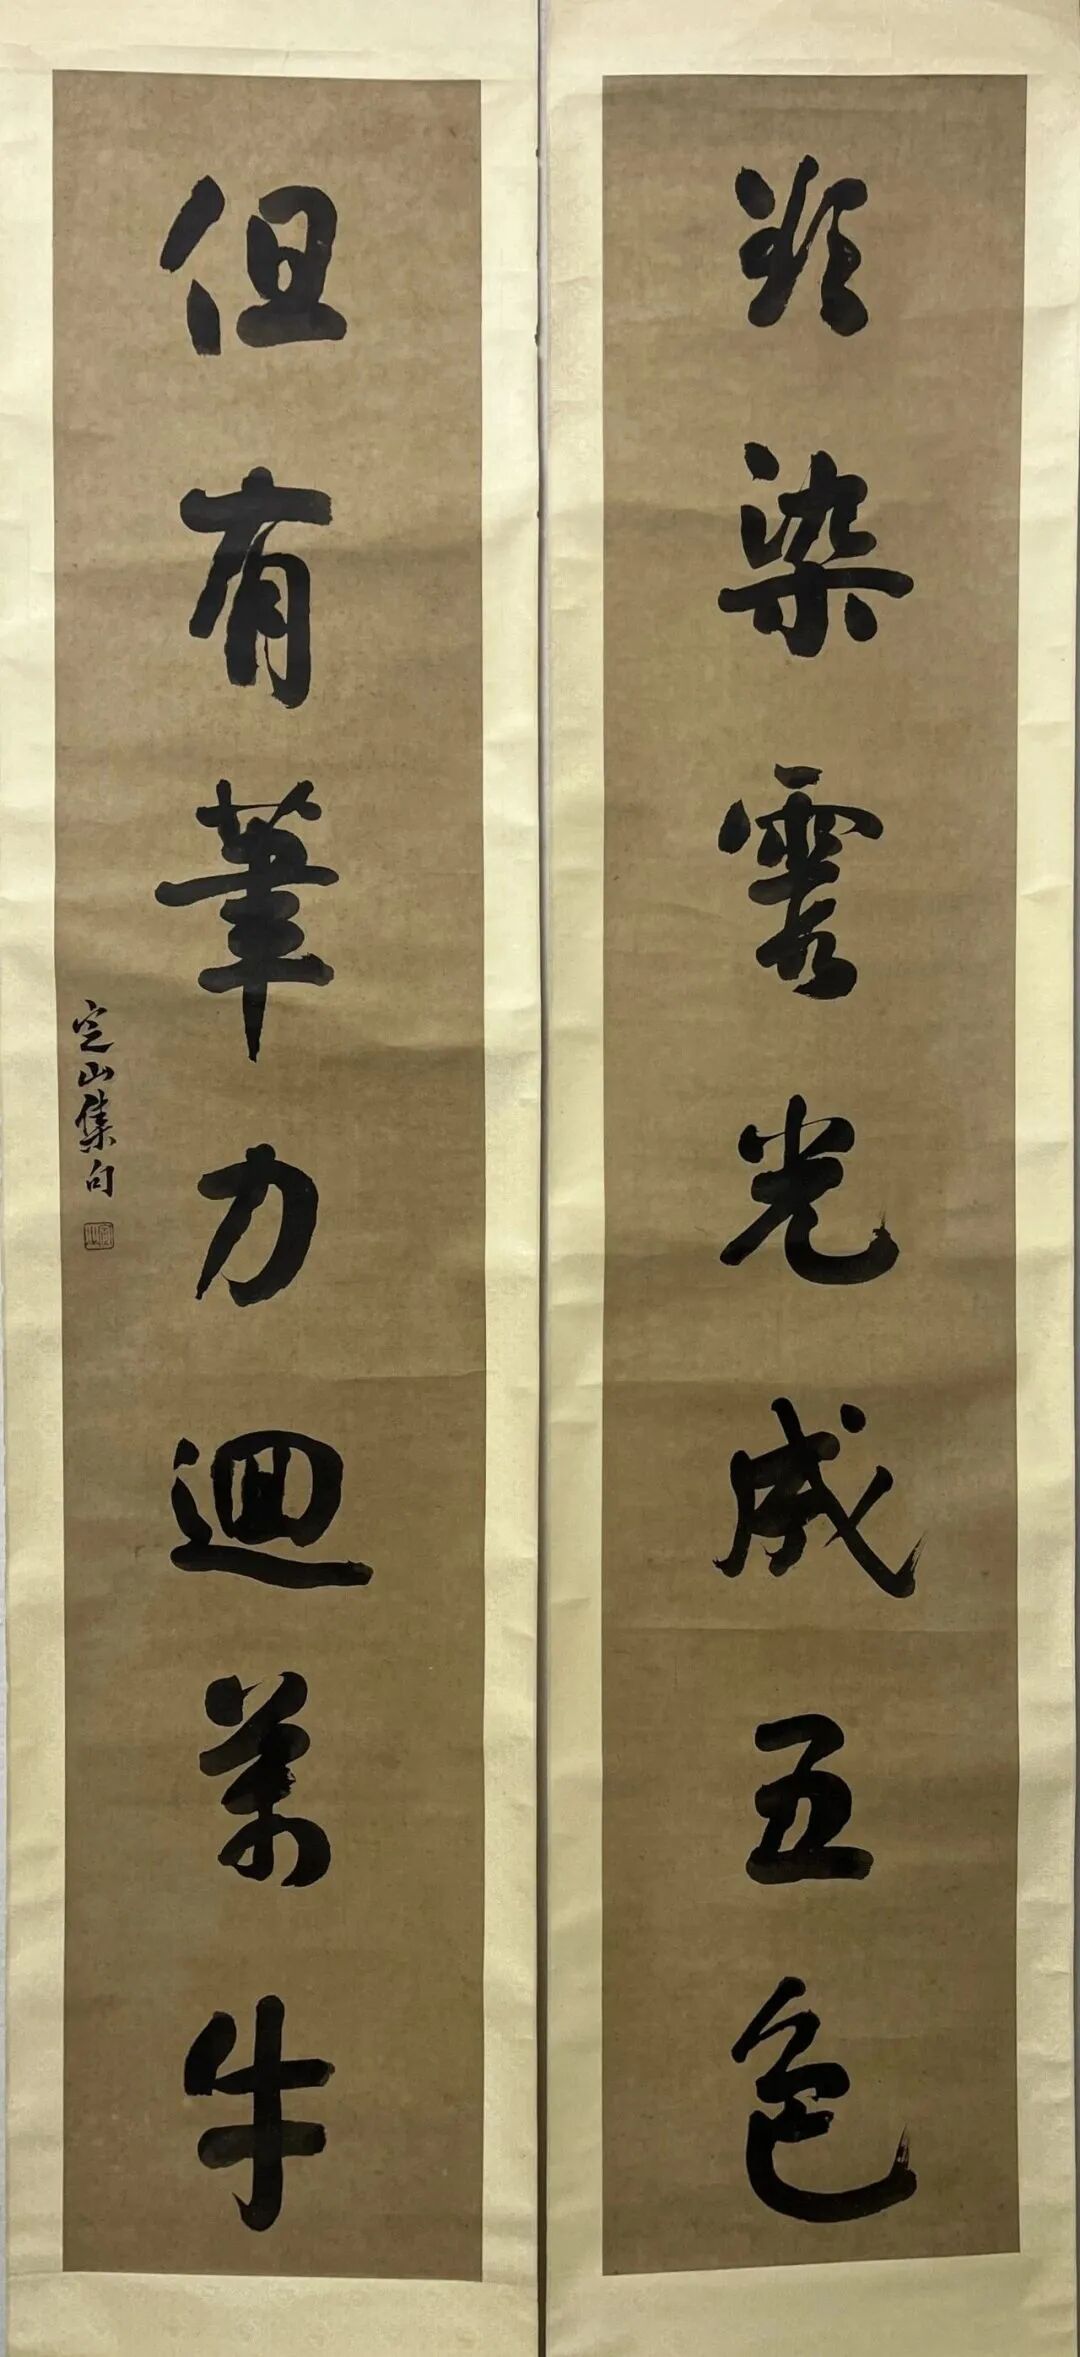 欲染霞光成五色
但有筆力迴萬牛
定山集句